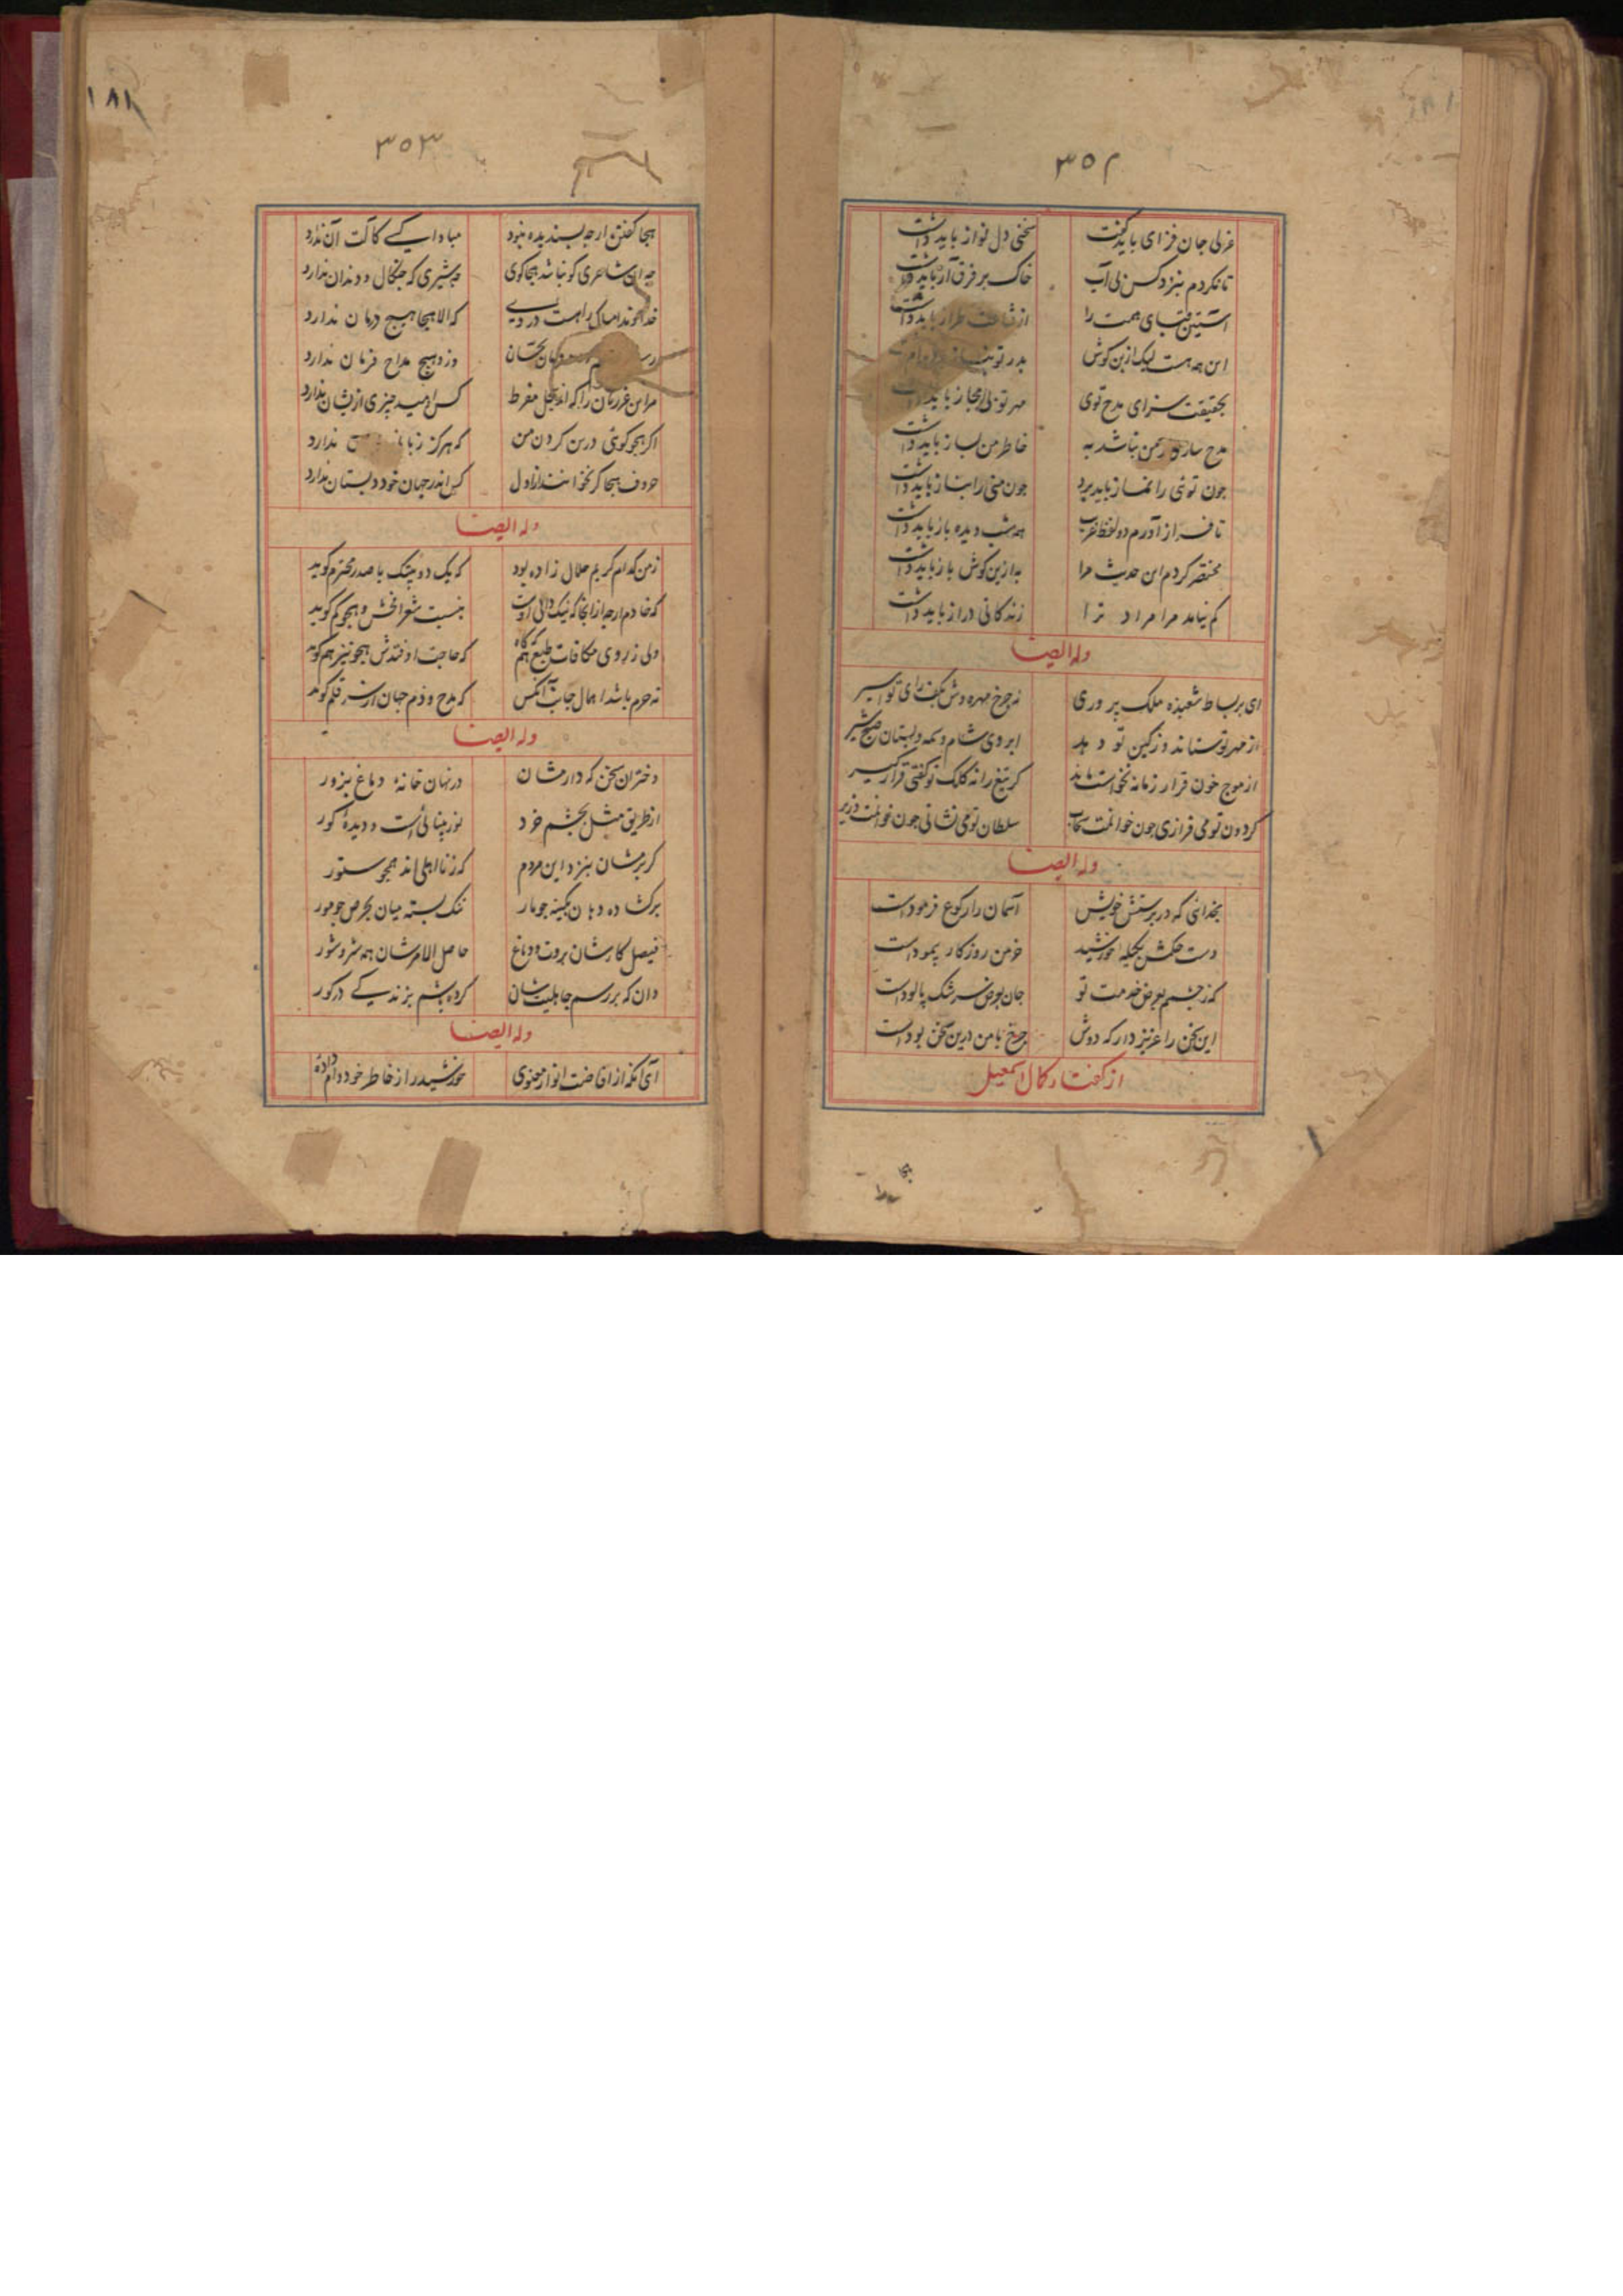 ۳۵۲
غزلی جان فزای باید گفت سخنی دل نواز باید داشت
تا نکردم بنزد کس بی آب خاک بر فرق آز باید داشت
آستین قبای همت را از قناعت طراز باید داشت
این همه هست لیک ازین گوش
بحقیقت سزای مدح توی مهر تو بی مجاز باید داشت
مدح سازی جو من نباشد به خاطر من بساز باید داشت
جون توئی را نماز باید برد جون منی را بناز باید داشت
تا فراز آورم دو لفظ غریب همه شب دیده باز باید داشت
مختصر کردم این حدیث مرا به ازین گوش باز باید داشت
کم نیامد مرا مراد ترا زندگانی دراز باید داشت
وله ایضا
ای بر بساط شعبذه ملک پروری نه جرخ مهره وش بکف رای تو اسیر
از مهر تو ستاند و ز کین تو دهد ابروی شام وسمه و پستان صبح شیر
از موج خون قرار زمانه نخواست ماند گر تیغ را نه کلک تو گفتی قرار گیر
گردون تو می فرازی جون خوانمت سحاب سلطان تو می نشانی جون خوانمت وزیر
وله ایضا
بخدائی که در پرستش خویش آسمان را رکوع فرمودست
دست حکمش بکیله خورشید خرمن روزگار پیمودست
که ز جشمم بعرض خدمت تو جان بعرض سرشک پالودست
این سخن را عزیز دار که دوش جرخ با من درین سخن بودست
از گفتار کمال اسمعیل
۱۸۱
۳۵۳
هجا گفتن ارجه پسندیده نبود مبادا کسی کآلت آن ندارد
جه آن شاعری کو نباشد هجاگوی جو شیری که جنگال و دندان ندارد
خداوند امساک را هست دردی که الا هجا هیچ درمان ندارد
وزو هیج مداح فرمان ندارد
مر این غرزنان را که اند بخل مفرط کس امید جیزی ازیشان ندارد
اگر هجو گوئی درین کردن من که هرگز زیانی ندارد
حروف هجا گر نخوانند از اول کس اندر جهان خود دبستان ندارد
وله ایضا
ز من کدام کریم حلال زاده بود که یک دو بیتک با صدر محترم گوید
که خادم ارجه از آنجا که نیک دانی اوست بنسبت شعرا فحش و هجو کم گوید
ولی ز روی مکافات طبع گه گاه که حاجت اوفتدش هجو نیز هم گوید
نه خرم باشد اهمال جانب آنکس که مدح و ذم جهان از سر قلم گوید
وله ایضا
دختران سخن که دارمشان در نهان خانهٔ دماغ بزور
از طریق مثل بجشم خرد نور بینائی است و دیدهٔ کور
گر برمشان بنزد این مردم که ز نااهلی اند همجو ستور
برگشاده دهان بکینه جو مار تنگ بسته میان بحرص جو مور
فیصل کارشان بروت و دماغ حاصل الامرشان همه شر و شور
وان که بر رسم جاهلیتشان کرده باشم بزندگی در گور
وله ایضا
آی آنکه از افاضت انوار معنوی خورشید را ز خاطر خود وام داده